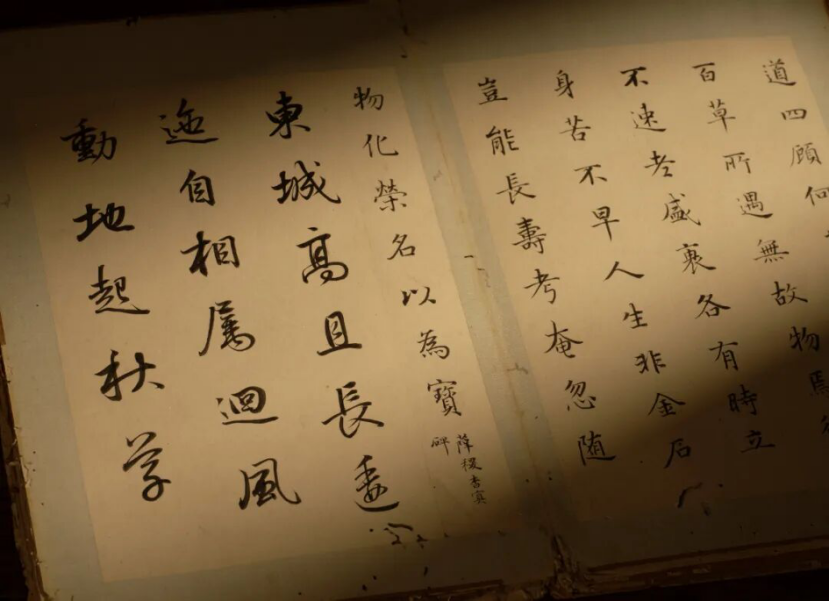 道四顧何
百草所遇無故物焉
不速老盛衰各有時立
身苦不早人生非金石
豈能長壽考奄忽随
物化榮名以為寶
薛稷杳冥
碑
東城高且長逶
迤自相屬迴風
動地起秋草